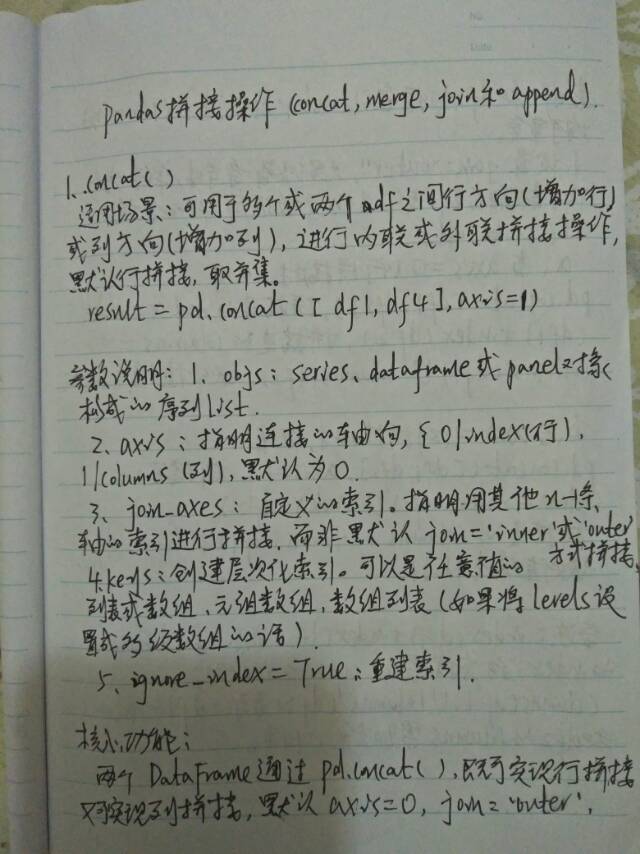 pandas拼接操作 (concat, merge, join和 append).
1. concat()
适用场景：可用于多个或两个df之间行方向(增加行)
或列方向(增加列)，进行内联或外联拼接操作，
默认行拼接，取并集。
result = pd.concat([df1, df4], axis=1)
参数说明：1、objs：series、dataframe或panel对象
构成的序列list.
2、axis：指明连接的轴向，{0/index(行),
1/columns (列)}, 默认为0.
3、join_axes：自定义的索引。指明用其他n-1条
轴的索引进行拼接，而非默认 join='inner'或'outer'
方式拼接,
4.keys：创建层次化索引。可以是任意值的
列表或数组、元组数组，数组列表(如果将levels设
置成多级数组的话).
5、ignore_index=True：重建索引.
核心功能：
两个DataFrame通过 pd.concat(), 既可实现行拼接
又可实现列拼接，默认axis=0, join='outer',